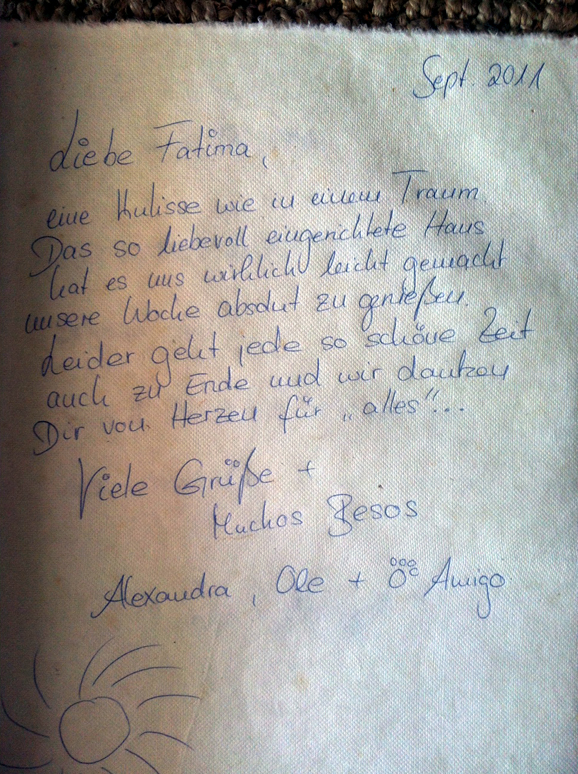 Sept. 2011
Liebe Fatima,
eine Kulisse wie in einem Traum.
Das so liebevoll eingerichtete Haus
hat es uns wirklich leicht gemacht
unsere Woche absolut zu genießen.
Leider geht jede so schöne Zeit
auch zu Ende und wir danken
Dir von Herzen für „alles"...
Viele Grüße +
Muchos Besos
Alexandra, Ole + Amigo